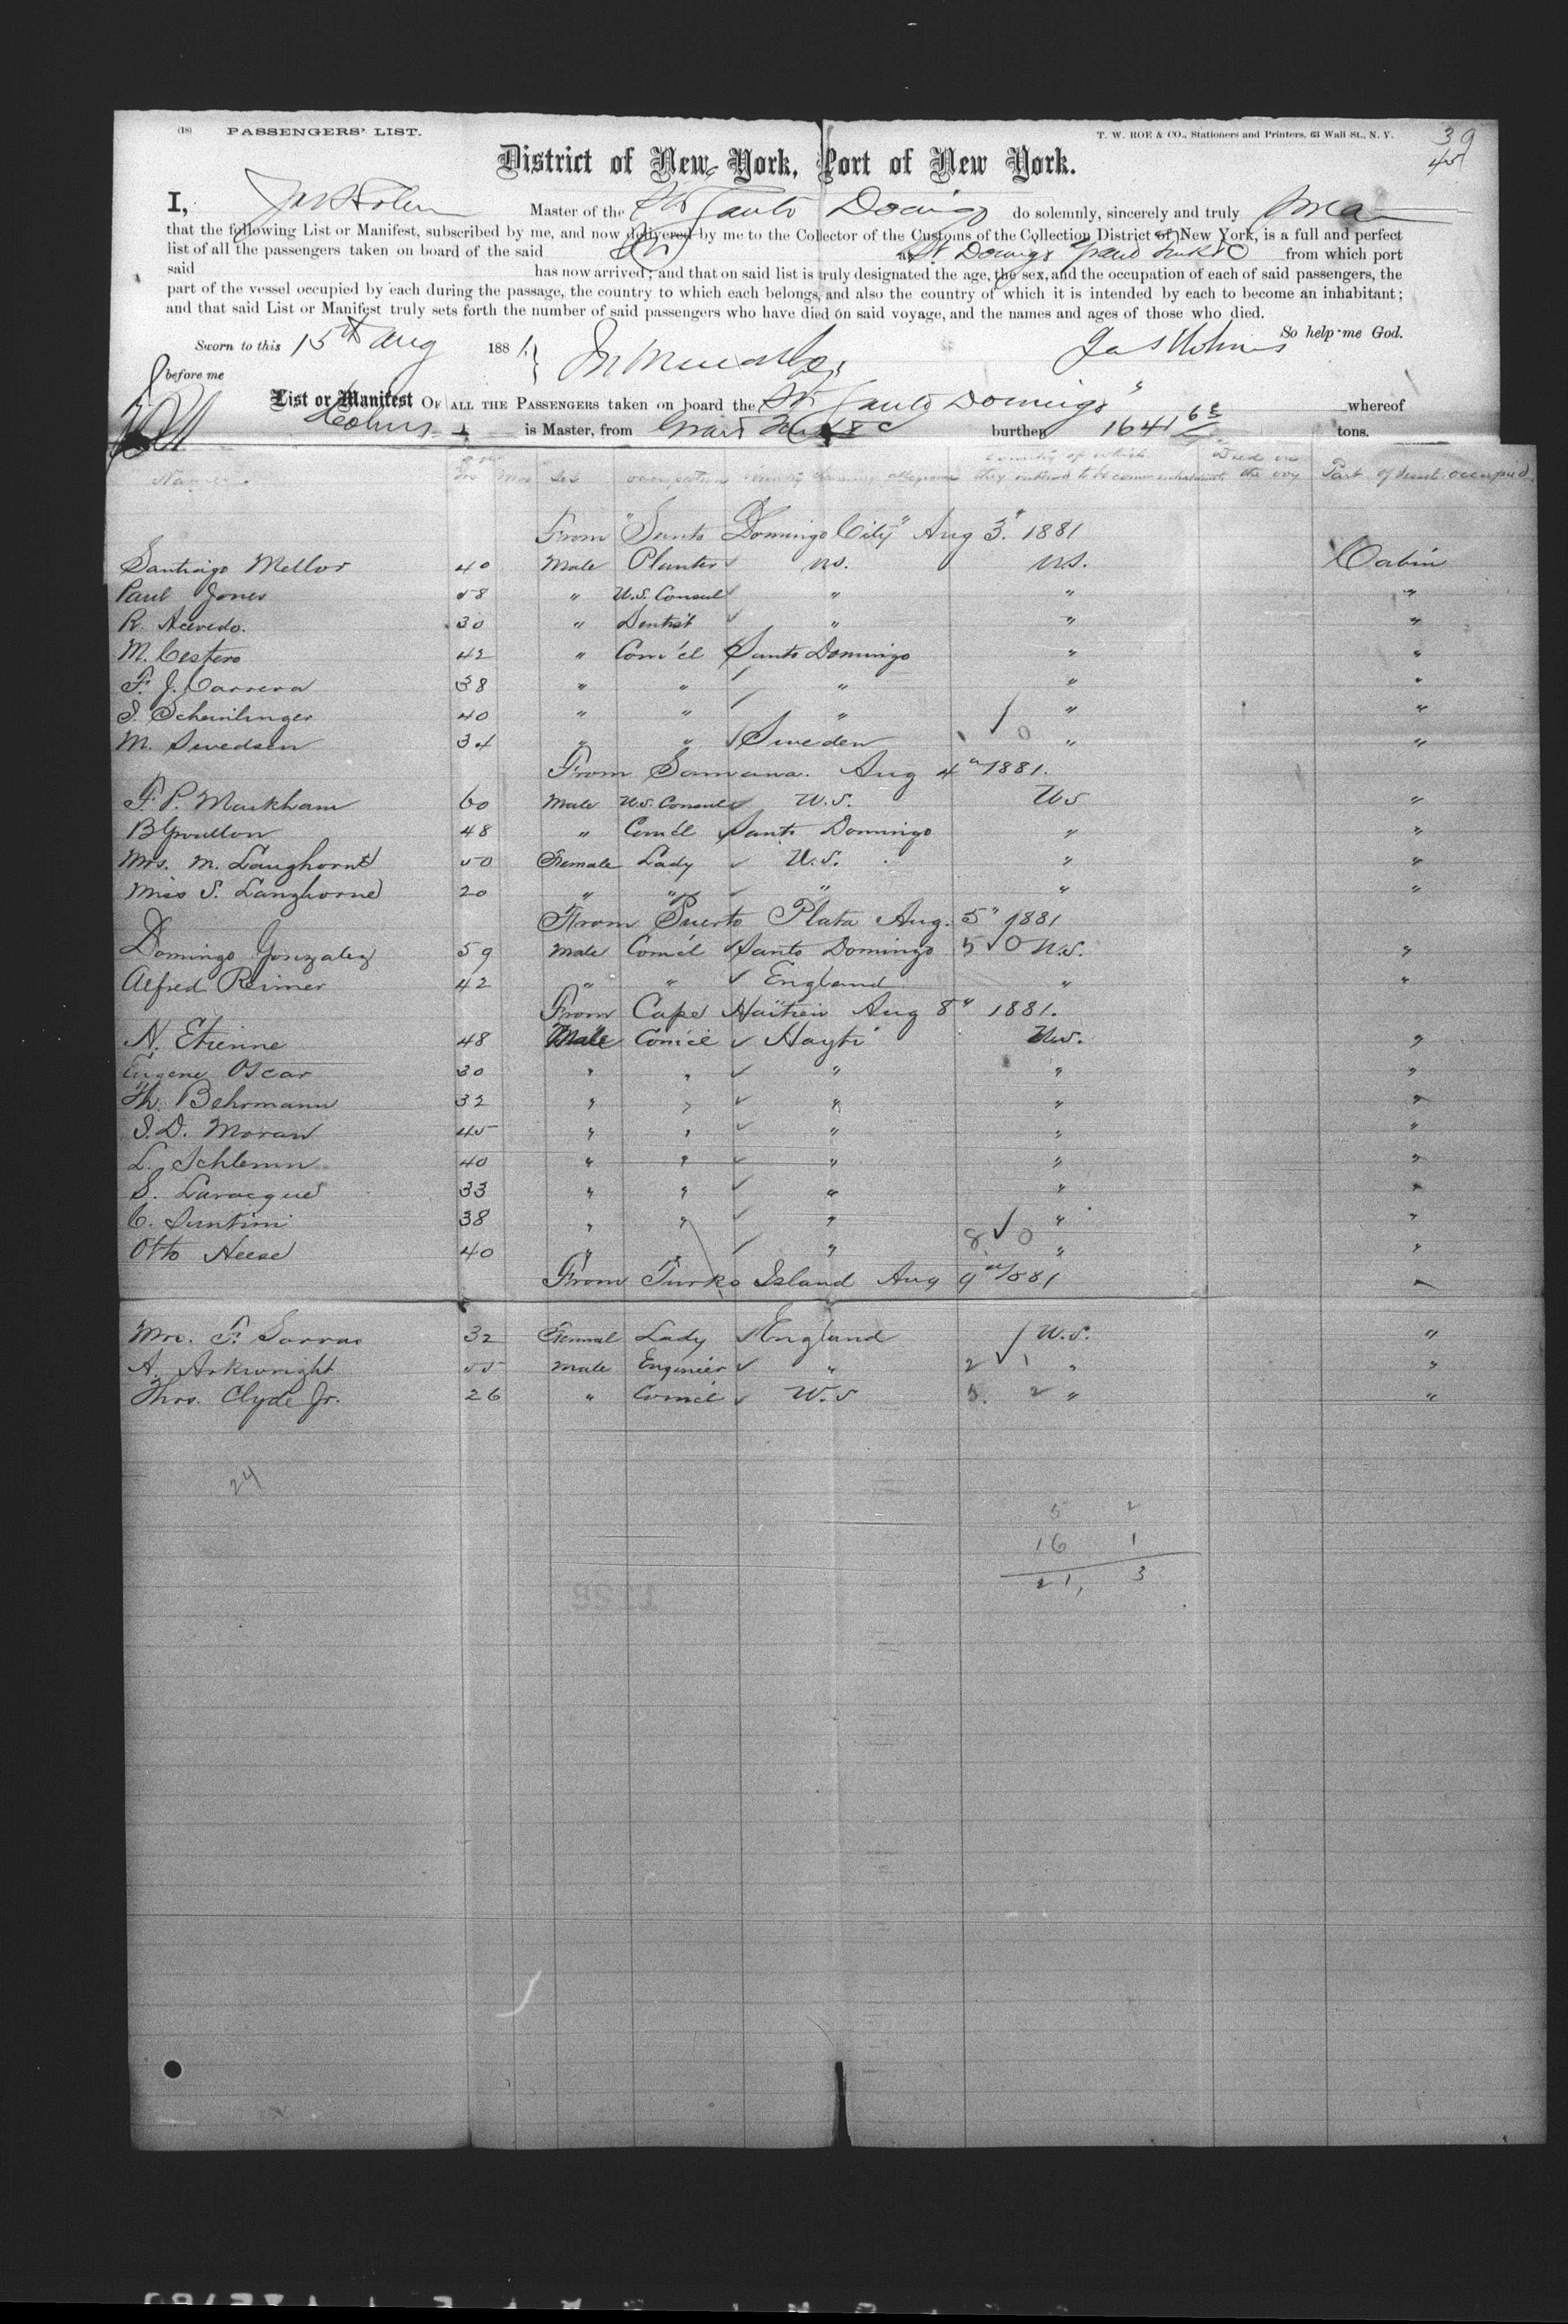 (18) PASSENGERS' LIST.
T. W. ROE & CO., Stationers and Printers, 63 Wall St., N. Y.
39
45
District of New York, Port of New York.
I, Master of the Santo Domingo do solemnly, sincerely and truly
that the following List or Manifest, subscribed by me, and now delivered by me to the Collector of the Customs of the Collection District of New York, is a full and perfect
list of all the passengers taken on board of the said at St Domingo from which port
said has now arrived; and that on said list is truly designated the age, the sex, and the occupation of each of said passengers, the
part of the vessel occupied by each during the passage, the country to which each belongs, and also the country of which it is intended by each to become an inhabitant;
and that said List or Manifest truly sets forth the number of said passengers who have died on said voyage, and the names and ages of those who died.
So help me God.
Sworn to this 15th Aug 1881
before me
List or Manifest OF ALL THE PASSENGERS taken on board the Santo Domingo" whereof
is Master, from burthen 1641 tons.
Names Yrs Mos Sex occupation they intend to become inhabitants Died on the voy Part of vessel occupied
From "Santo Domingo City" Aug 3" 1881
Santiago Mellor 40 Male Planter U.S. U.S. Cabin
Paul Jones 58 " U.S. Consul " " "
R. Acevedo. 30 " Dentist " " "
M. Cestero 42 " Com'cl Santo Domingo " "
F. J. Carrera 38 " " " " "
S. 40 " " " " "
M. Swedsen 34 " " Sweden 0 " "
From Samana. Aug 4" 1881.
F. P. Markham 60 Male U.S. Consul U.S. U.S "
48 " Com'cl Santo Domingo " "
Mrs. M. Langhorne 50 Female Lady U.S. " "
Miss S. Langhorne 20 " " " " "
From Puerto Plata Aug. 5" 1881
Domingo Gonzalez 59 Male Com'cl Santo Domingo 5 0 U.S. "
Alfred Reimer 42 " " England " "
From Cape Haitien Aug 8" 1881.
N. Etienne 48 Male Com'cl Hayti U.S. "
Eugene Oscar 30 " " " " "
Th. Behrmann 32 " " " " "
S. D. Moran 45 " " " " "
L. Schlemm 40 " " " " "
S. Laracque 33 " " " " "
C. Santini 38 " " " " "
Otto Heese 40 " " " 8 0 " "
From Turks Island Aug 9th 1881
Mrs. F. 32 Femal Lady England U.S. "
A. Arkwright 55 Male Engineer " 2 1 " "
Thos. Clyde Jr. 26 " Com'cl U.S 5. 2 " "
24
5 2
16 1
21, 3